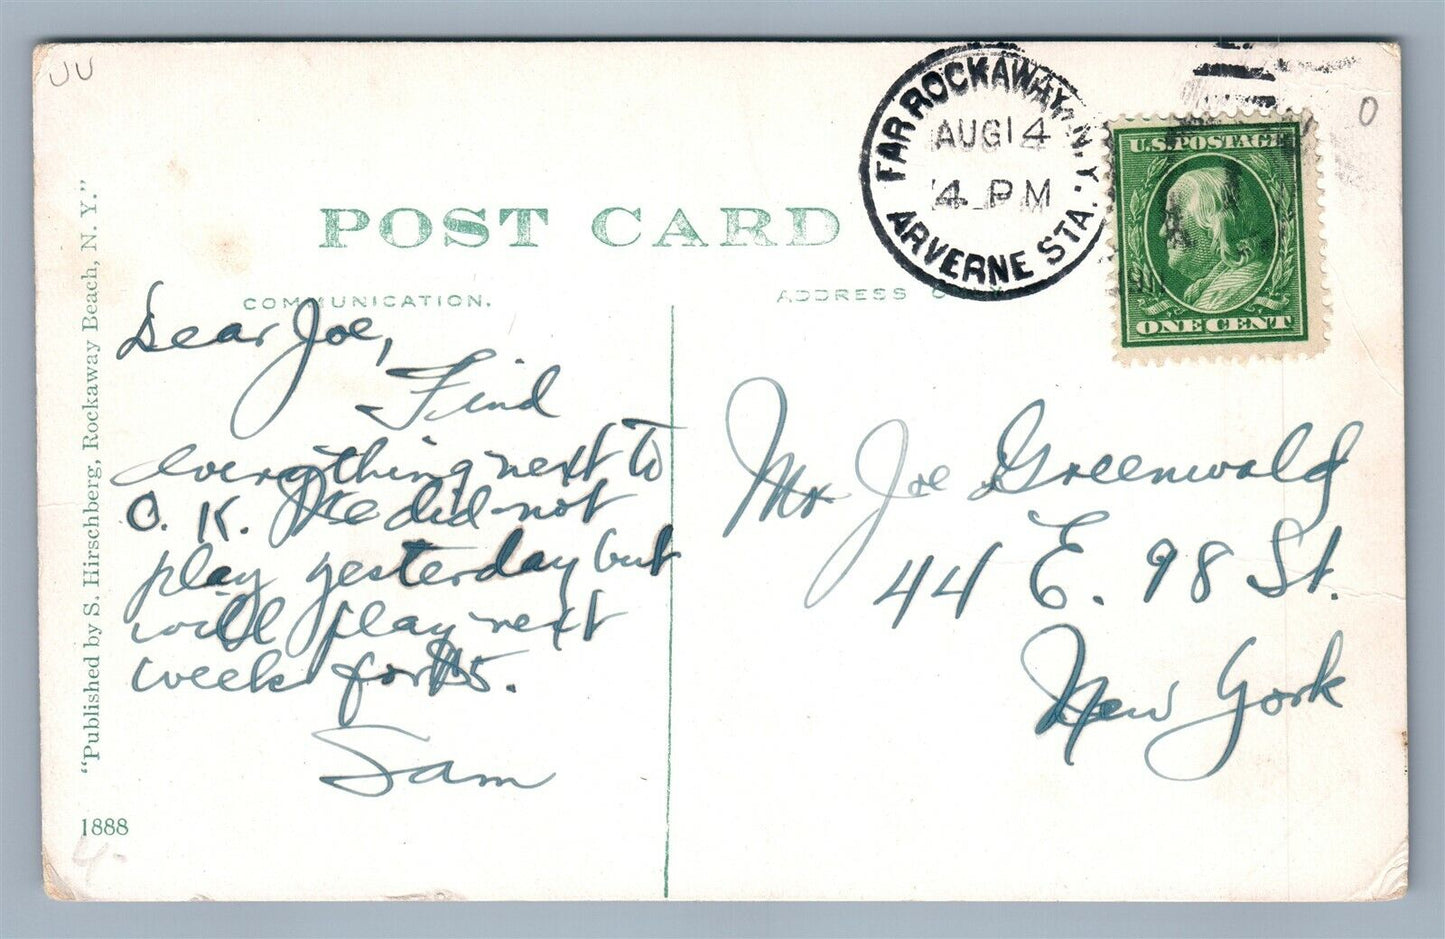 UU
FAR ROCKAWAY, N.Y.
AUG 14
4 PM
ARVERNE STA.
0
U.S. POSTAGE
ONE CENT
POST CARD
COMMUNICATION.
ADDRESS ONLY
"Published by S. Hirschberg, Rockaway Beach, N. Y."
Dear Joe,
Find
everything next to
O. K. We did not
play yesterday but
will play next
week for $5.
Sam
Mr Joe Greenwald
44 E. 98 St.
New York
1888
4.